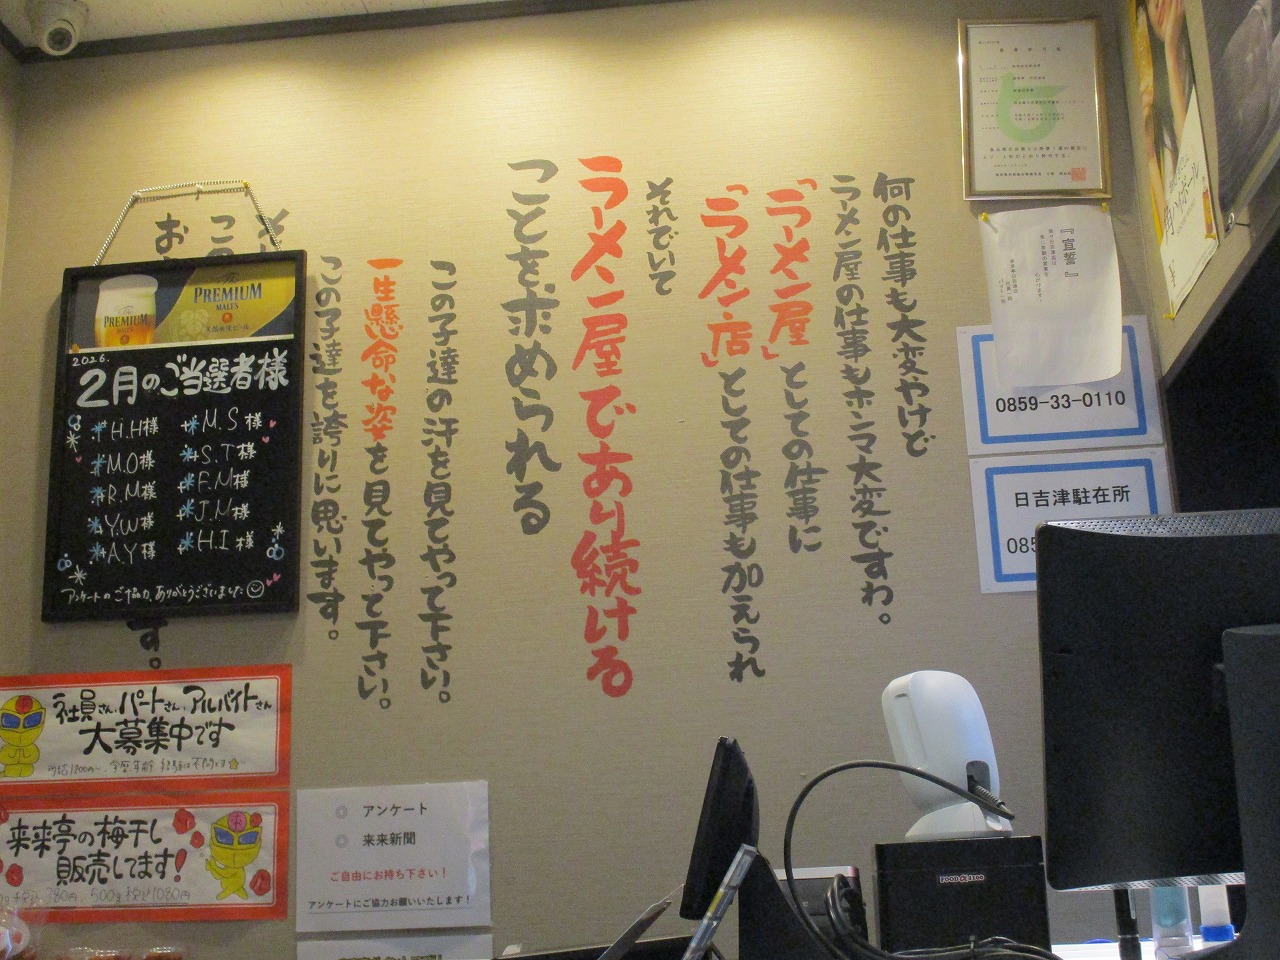 何の仕事も大変やけど
ラーメン屋の仕事もホンマ大変ですわ。
「ラーメン屋」としての仕事に
「ラーメン店」としての仕事も加えられ
それでいて
ラーメン屋であり続ける
ことを求められる
この子達の汗を見てやって下さい。
一生懸命な姿を見てやって下さい。
この子達を誇りに思います。
The
PREMIUM
MALT'S
天然水生ビール
PREMIUM
MALT'S
2026.
2月のご当選者様
H.H様
M.O様
R.M様
Y.W様
A.Y様
M.S様
S.T様
F.M様
J.M様
H.I様
アンケートのご協力、ありがとうございました
社員さん、パートさん、アルバイトさん
大募集中です
来来亭の梅干し
販売してます!
◎ アンケート
◎ 来来新聞
ご自由にお持ち下さい！
アンケートにご協力お願いいたします！
『宣誓』
0859-33-0110
日吉津駐在所
085